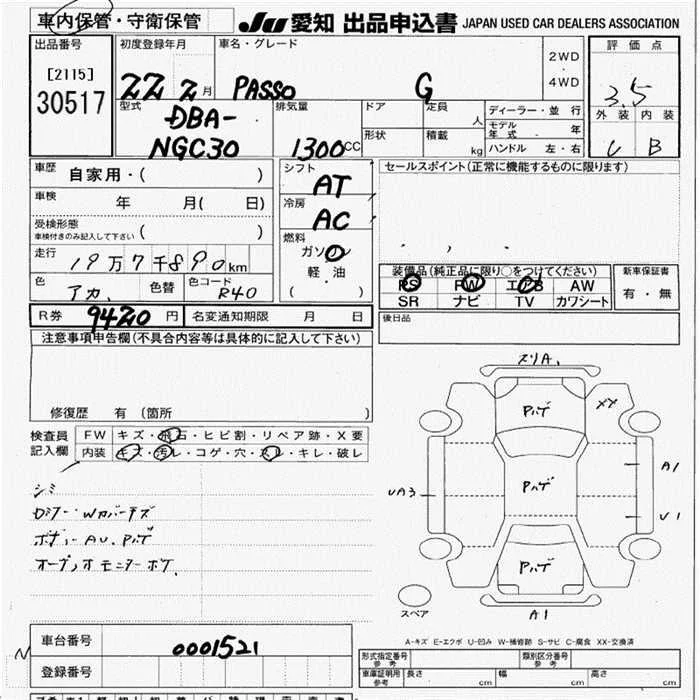 車内保管・守衛保管
JU 愛知 出品申込書 JAPAN USED CAR DEALERS ASSOCIATION
出品番号
[2115]
30517
初度登録年月
22 2月
車名・グレード
PASSO G
2WD
・
4WD
評価点
3.5
外装 内装
C B
型式
DBA-
NGC30
排気量
1300CC
ドア
定員
人
形状
積載
kg
ディーラー・並 行
モデル年式 年
ハンドル 左・右
車歴
自家用・( )
車検
年 月( 日)
受検形態
車検付きのみ記入して下さい
( )
走行
19万7千890km
色
アカ
色替
色コード
R40
シフト
AT
冷房
AC
燃料
ガソリン
軽・油
( )
セールスポイント(正常に機能するものに限ります)
装備品(純正品に限り○をつけてください)
PS PW エアB AW
SR ナビ TV カワシート
新車保証書
有・無
R券 9420円
名変通知期限 月 日
後日品
注意事項申告欄(不具合内容等は具体的に記入して下さい)
修復歴 有 (箇所 )
検査員
記入欄
FW キズ・飛石・ヒビ割・リペア跡・X要
内装 キズ・汚レ・コゲ・穴・スレ・キレ・破レ
シミ
ボディー AU. Pハゲ
スリA.
Pハゲ
XX
UA3
Pハゲ
A1
U1
Pハゲ
スペア
A1
A-キズ E-エクボ U-凹み W-補修跡 S-サビ C-腐食 XX-交換済
車台番号
0001521
登録番号
形式指定番号
参考
類別区分番号
参考
車庫証明用
参考
長さ cm
幅 cm
高さ cm